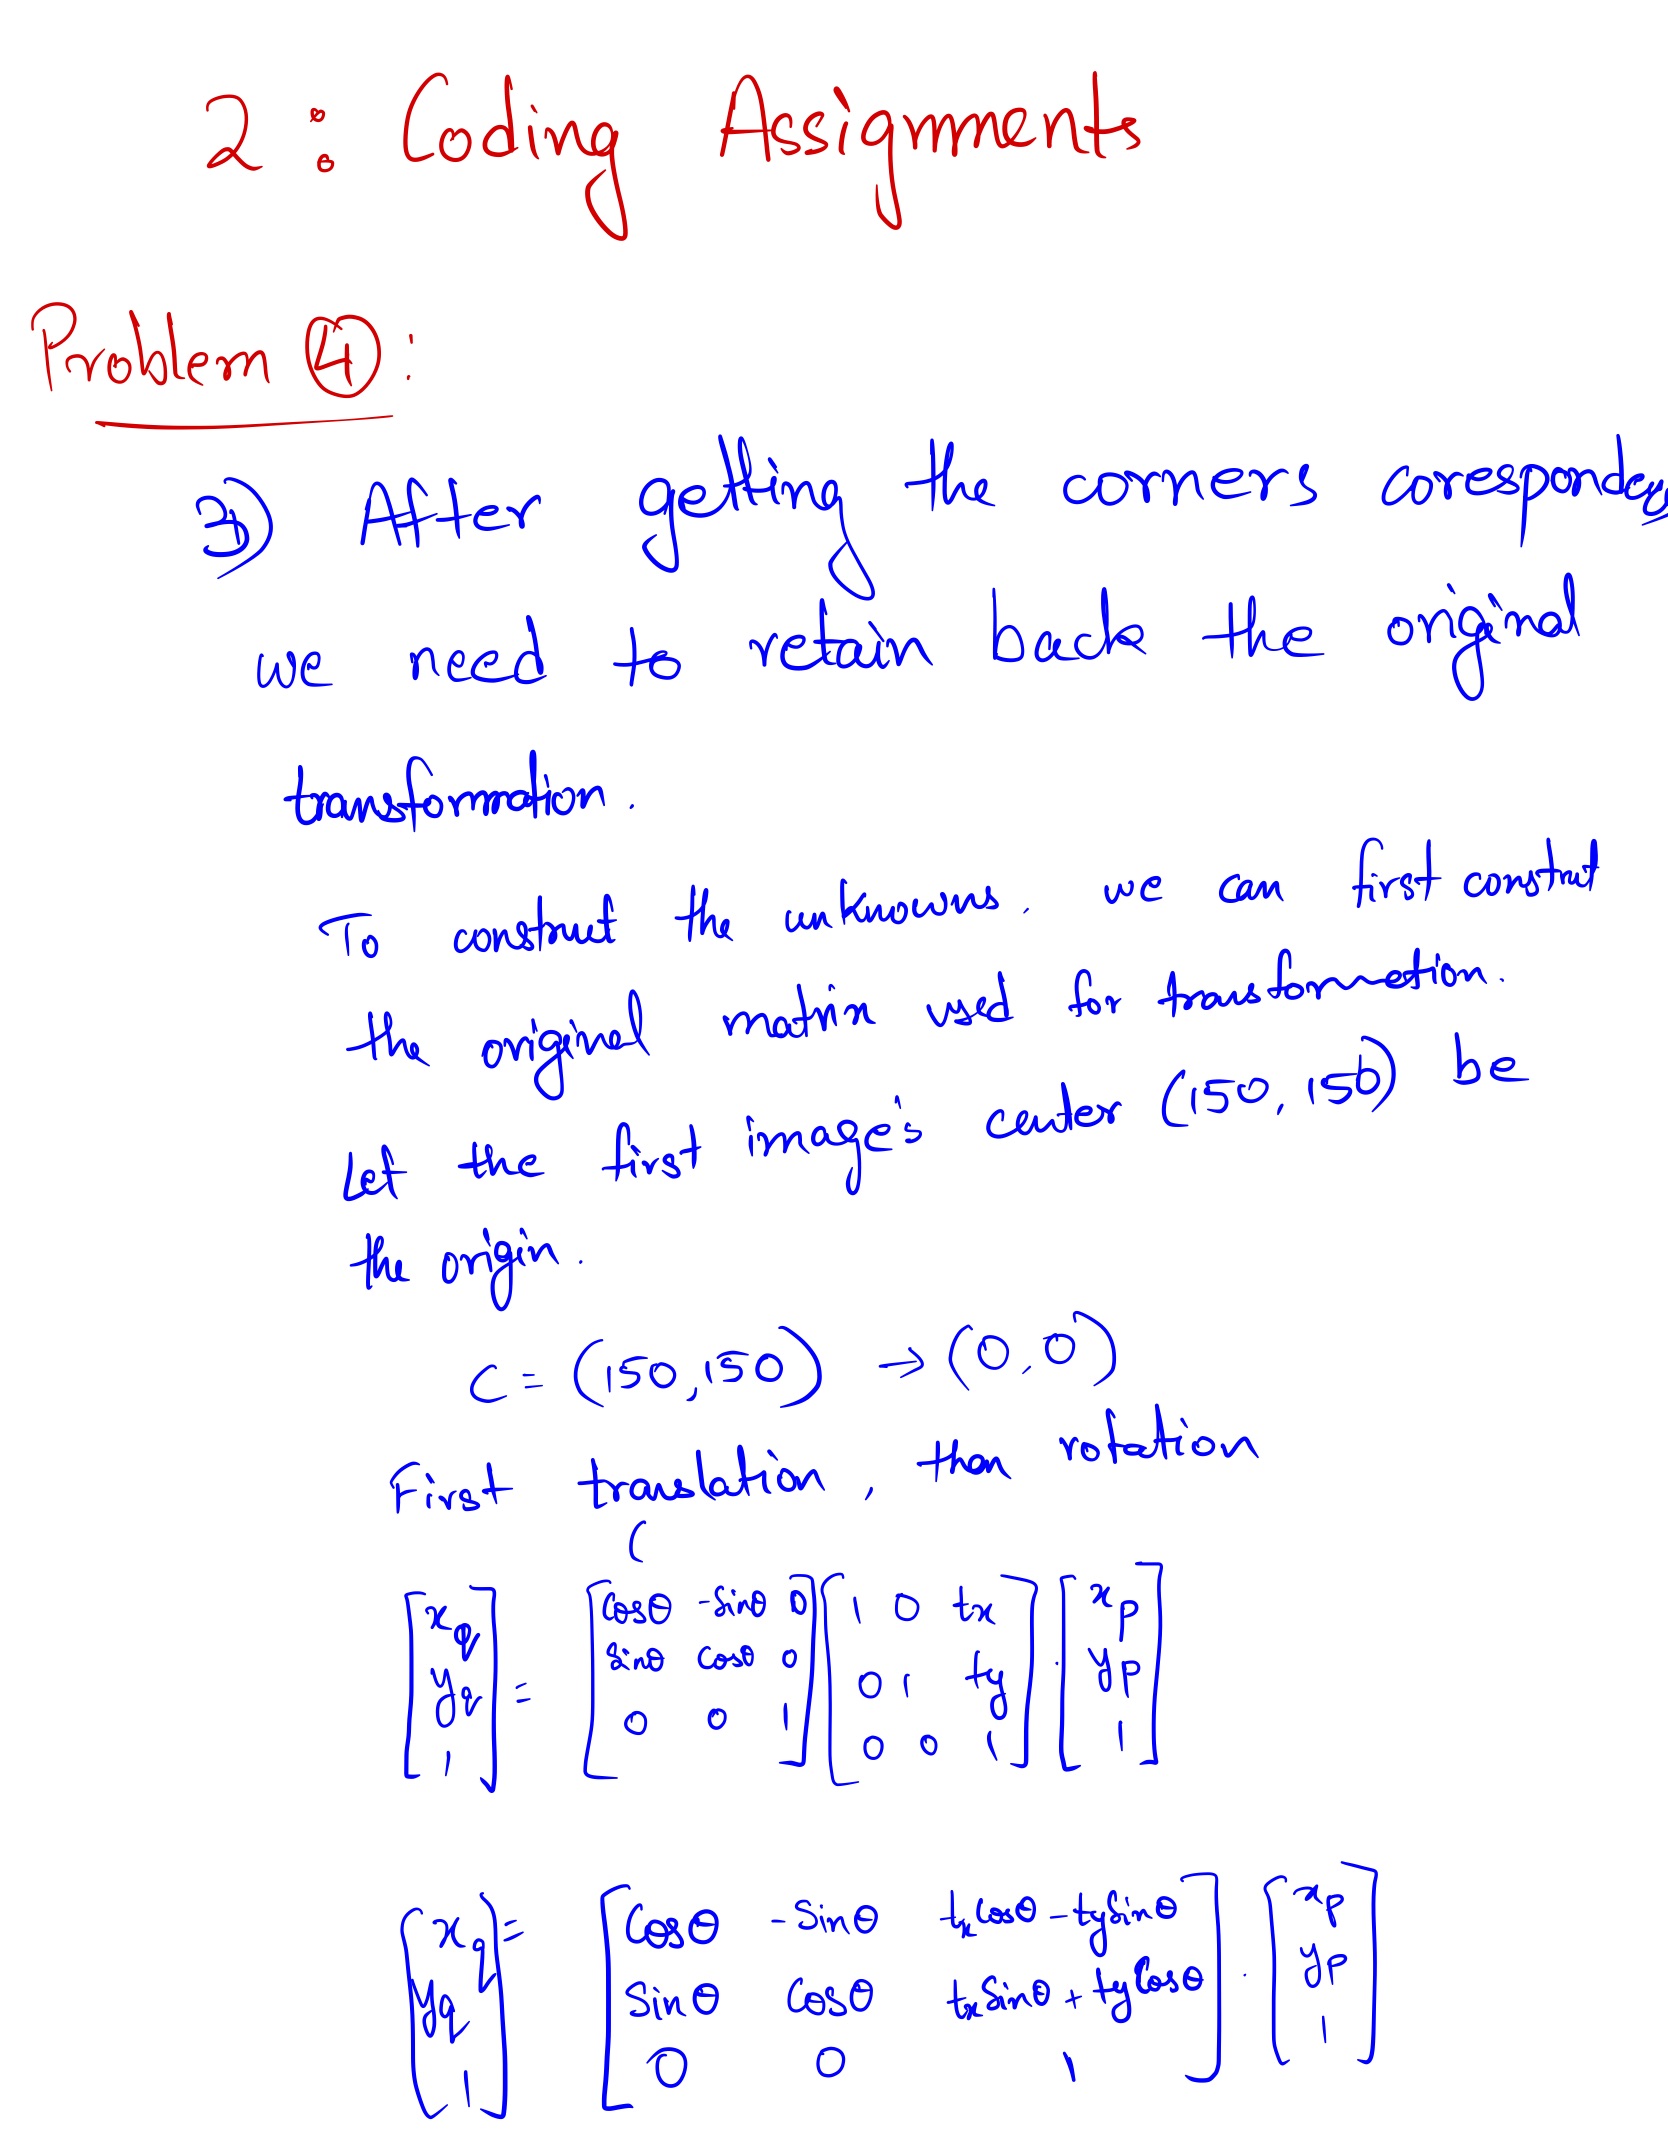 2 : Coding Assignments
Problem ④ :
3) After getting the corners corespondey
we need to retain back the original
transformation.
To construct the unknowns. we can first construt
the original matrix used for transformation.
Let the first image's center (150, 150) be
the origin.
C = (150,150) → (0,0)
First translation, then rotation
(
[xq yq 1] = [cosθ -sinθ 0; sinθ cosθ 0; 0 0 1] [1 0 tx; 0 1 ty; 0 0 1] . [xp yp 1]
[xq yq 1] = [Cosθ -Sinθ txCosθ - tySinθ; Sinθ Cosθ txSinθ + tyCosθ; 0 0 1] . [xp yp 1]